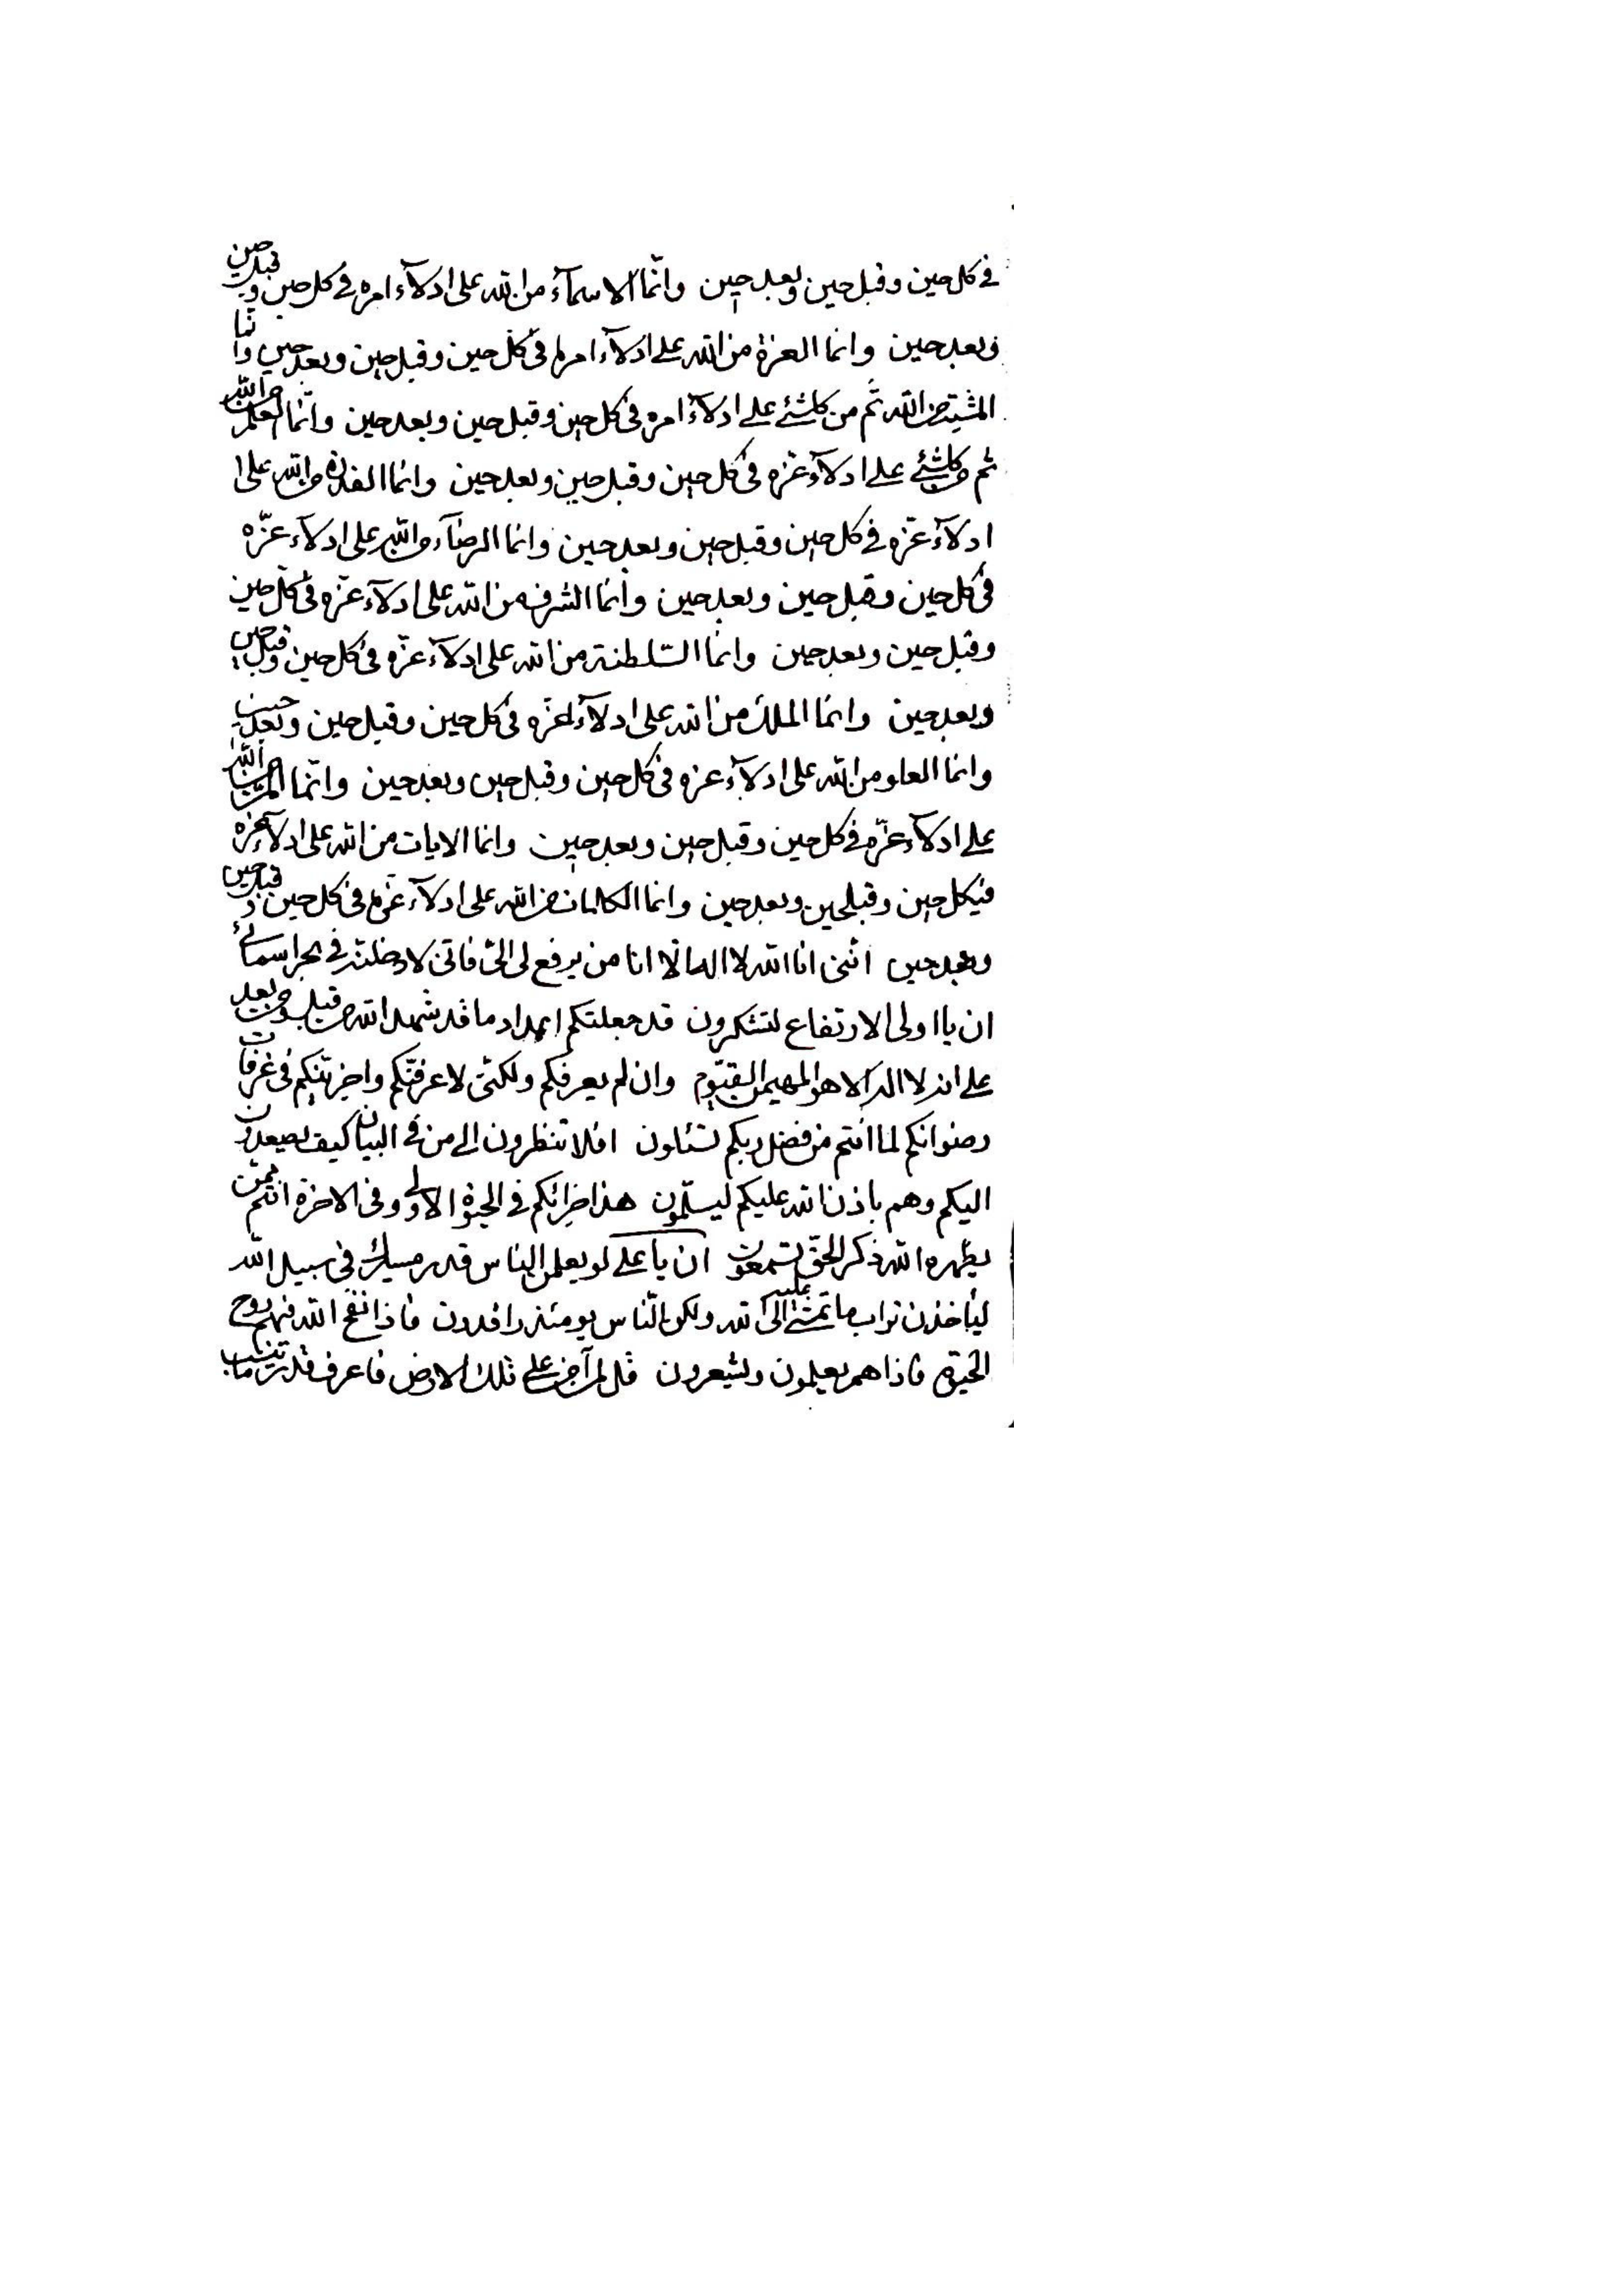 في كل حين وقبل حين وبعد حين وانّما الاسمآء من الله على ادلآء امره في كل حين وقبل حين
وبعد حين وانما العزة من الله على ادلآء امره في كل حين وقبل حين وبعد حين وانّما
المشية من الله ثم من كلشئ على ادلآء امره في كل حين وقبل حين وبعد حين وانّما العلم من الله
ثم من كلشئ على ادلآء عزه في كل حين وقبل حين وبعد حين وانما القدرة من الله على ا
ادلآء عزّه في كل حين وقبل حين وبعد حين وانما الرضآء من الله على ادلآء عزّه
في كل حين وقبل حين وبعد حين وانما الشرف من الله على ادلآء عزه في كل حين
وقبل حين وبعد حين وانما السّلطنة من الله على ادلآء عزّه في كل حين وقبل حين
وبعد حين وانما الملك من الله على ادلآء عزه في كل حين وقبل حين وبعد حين
وانما العلو من الله على ادلآء عزه في كل حين وقبل حين وبعد حين وانّما من الله
على ادلآء عزّه في كل حين وقبل حين وبعد حين وانما الايات من الله على ادلآء عزه
فيكل حين وقبلحين وبعد حين وانما الكلمات من الله على ادلآء عزه في كل حين وقبل حين
وبعد حين انّني انا الله لا اله الّا انا من يرفع لي اليّ فانّي لادخلنّه في بحر اسمائي
ان يا اولى الارتفاع لتشكرون قد جعلتكم اعداد ما قد شهد الله من قبل ومن بعد
على انه لا اله الا هو المهيمن القيّوم وان لم يعرفكم ولكنّي لاعرفنّكم واجزينّكم في غرفات
رضوانكم لما انتم من فضل ربكم تسئلون افلا تنظرون الى من في البيان كيف يصعدون
اليكم وهم باذن الله عليكم ليسلّمون هذا جزائكم في الحيوة الاولى وفي الاخرة انتم بمن
يظهره الله ذكر الحقّ تسمعون ان يا علي لو يعلمن الناس قدر مسيرك في سبيل الله
ليأخذن تراب ما تمشي عليه الى الله ولكن النّاس يومئذ راقدون فاذا نفخ الله فيهم روح
الحيوة فاذا هم يعلمون ويشعرون قل لم آخر على تلك الارض فاعرف قدر ما